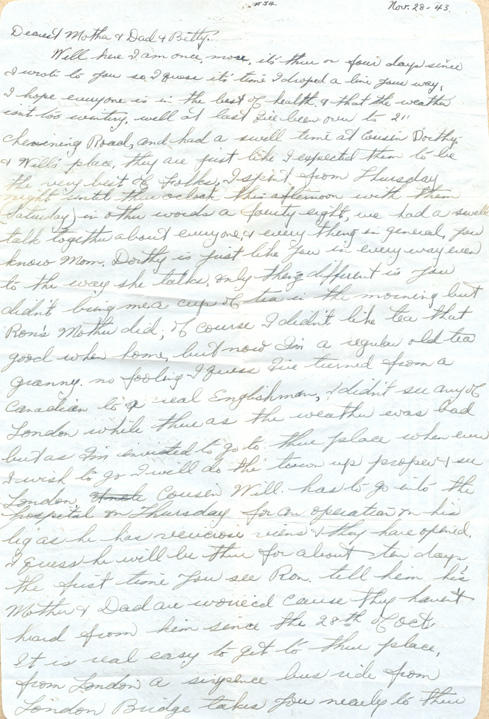 #34
Nov. 28-43.
Dearest Mother & Dad & Betty.
Well here I am once more, it's three or four days since
I wrote to you so I guess it's time I droped a line your way,
I hope everyone is in the best of health, & that the weather
isn't too wintery, well at last I've been over to 211
Road, and had a swell time at Cousin Dorthy
& Will's place, they are just like I expected them to be
the very best of folks, I spent from Thursday
night until three oclock this afternoon with them
(Saturday) in other words a fourty eight, we had a swell
talk together about everyone, & every thing in general, you
know Mom. Dorthy is just like you in every way even
to the way she talks, only thing different is you
didn't bring me a cup of tea in the morning but
Ron's Mother did, of course I didn't like tea that
good when home, but now I'm a regular old tea
granny. no fooling I guess I've turned from a
Canadian to a real Englishman, I didn't see any of
London while there as the weather was bad
but as I'm invited to go to their place when ever
I wish to go I will do the town up proper & see
London, Cousin Will has to go into the
hospital on Thursday for an operation on his
leg as he has viens & they have opened.
I guess he will be there for about ten days
the first time you see Ron. tell him his
Mother & Dad are worried cause they haven't
heard from him since the 28th of Oct.
It is real easy to get to their place,
from London a sixpence bus ride from
London Bridge takes you nearly to their